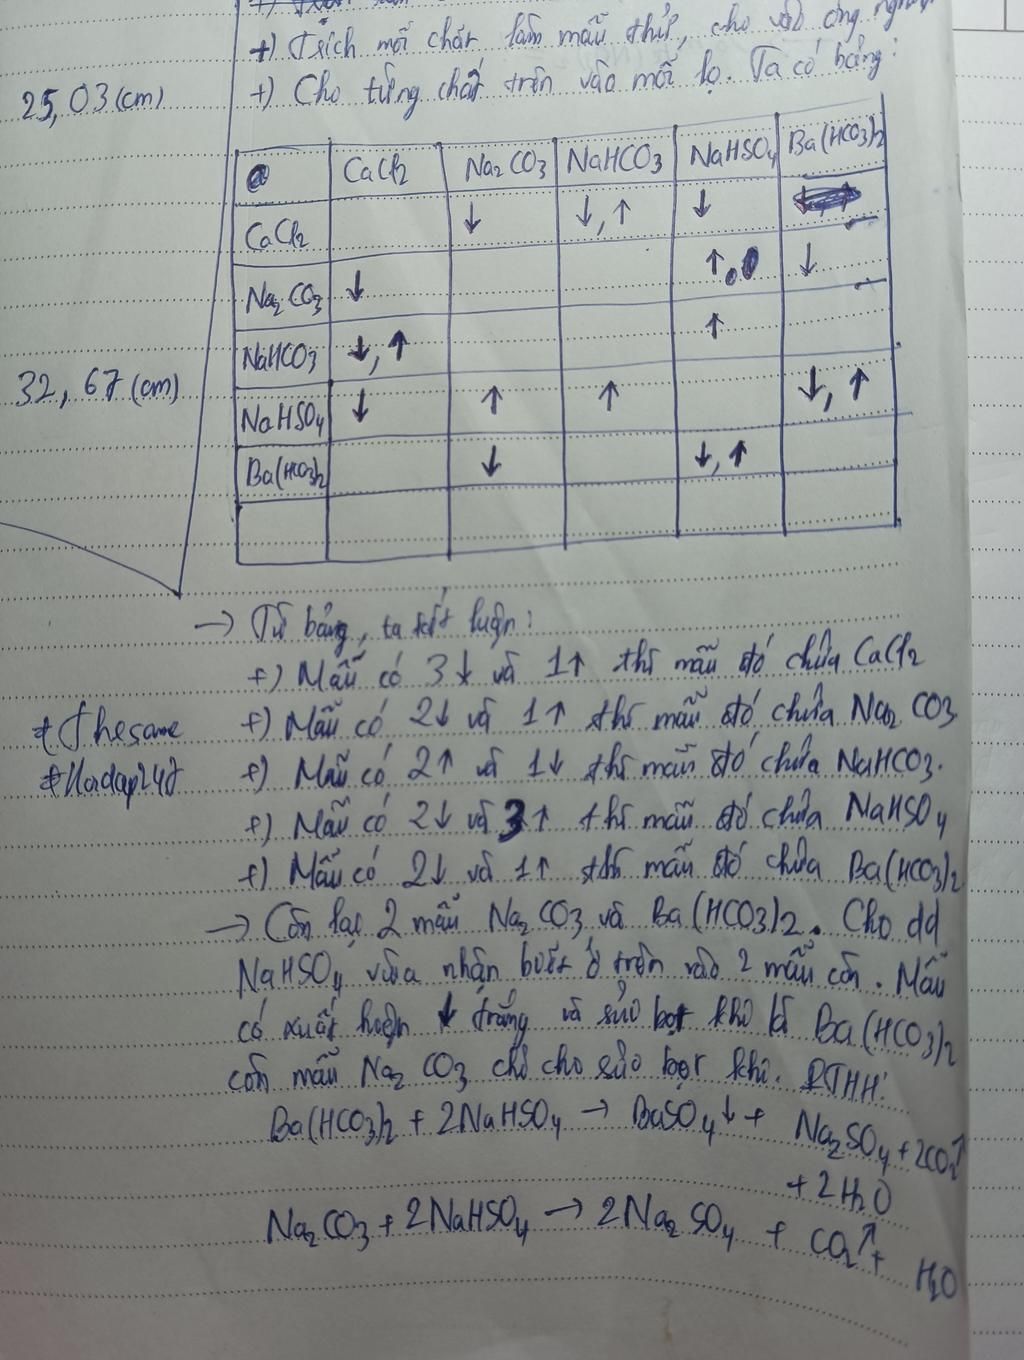 +) Trích mỗi chất làm mẫu thử, cho vào ống
+) Cho từng chất trên vào mỗi lọ. Ta có bảng:
25,03 (cm)
CaCl2 Na2CO3 NaHCO3 NaHSO4 Ba(HCO3)2
CaCl2 ↓ ↓,↑ ↓
Na2CO3 ↓ ↑ ↓
NaHCO3 ↓,↑ ↑
32,67 (cm)
NaHSO4 ↓ ↑ ↑ ↓,↑
Ba(HCO3)2 ↓ ↓,↑
→ Từ bảng, ta kết luận:
+) Mẫu có 3↓ và 1↑ thì mẫu đó chứa CaCl2
+) Mẫu có 2↓ và 1↑ thì mẫu đó chứa Na2CO3
+) Mẫu có 2↑ và 1↓ thì mẫu đó chứa NaHCO3.
+) Mẫu có 2↓ và 3↑ thì mẫu đó chứa NaHSO4
+) Mẫu có 2↓ và 1↑ thì mẫu đó chứa Ba(HCO3)2
Thesame
#Hoidap247
→ Còn lại 2 mẫu Na2CO3 và Ba(HCO3)2. Cho dd
NaHSO4 vừa nhận biết ở trên vào 2 mẫu còn. Mẫu
có xuất hiện ↓ trắng và sủi bọt khí là Ba(HCO3)2
còn mẫu Na2CO3 chỉ cho sủi bọt khí. PTHH:
Ba(HCO3)2 + 2NaHSO4 → BaSO4↓ + Na2SO4 + 2CO2↑
+ 2H2O
Na2CO3 + 2NaHSO4 → 2Na2SO4 + CO2↑ + H2O